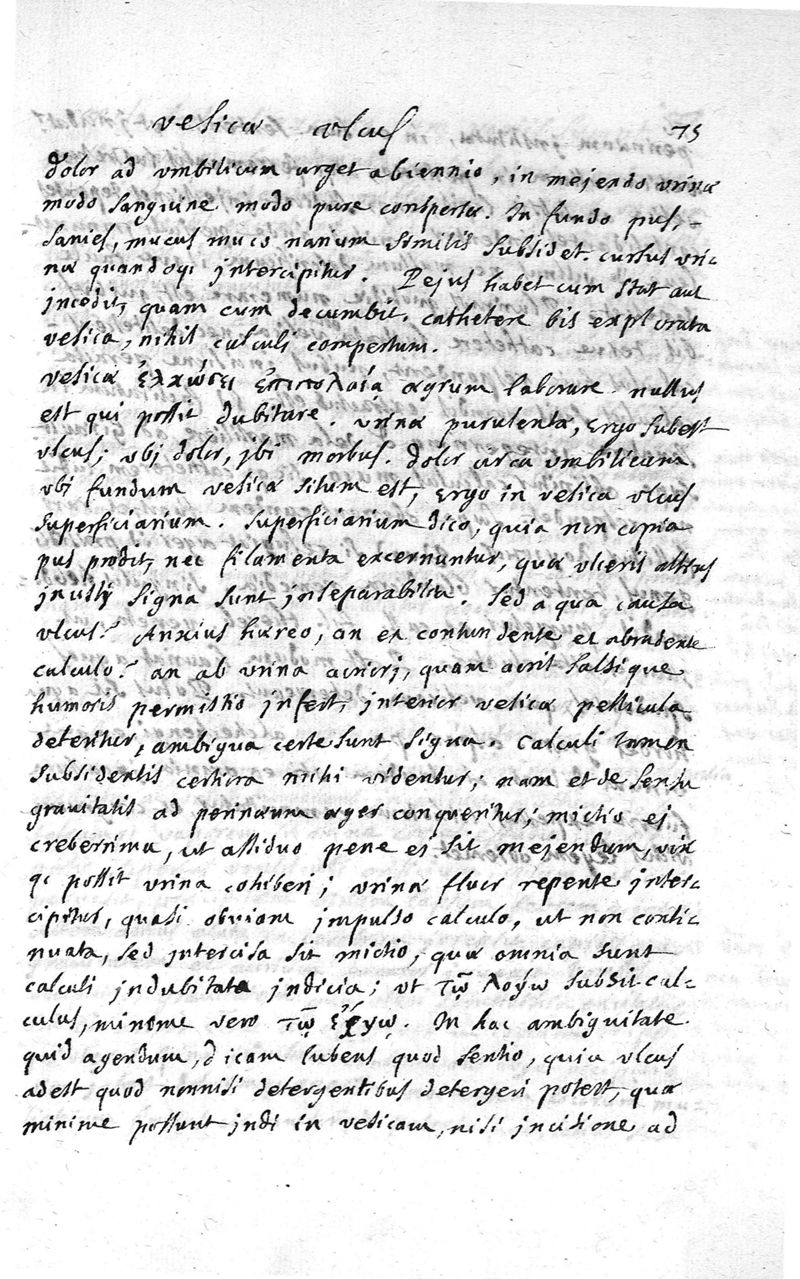 vesicæ vlcus 75
dolor ad vmbilicum urget a biennio, in mejendo vrinæ
modo sanguine modo pure conspersæ. In fundo pus,
sanies, mucus muco narium similis subsidet. cursus vri-
næ quandoq; intercipitur. Pejus habet cum stat aut
incedit, quam cum decumbit. cathetere bis explorata
vesica, nihil calculi compertum.
vesicæ ἑλκώσει ἐπιπολαίᾳ ægrum laborare nullus
est qui possit dubitare. vrina purulenta, ergo subest
vlcus; vbj dolor, jbi morbus. dolor circa vmbilicum
vbi fundum vesicæ situm est, ergo in vesica vlcus
superficiarium. superficiarium dico, quia non copia
pus prodit, nec filamenta excernuntur, quæ vlceris altius
jnusti signa sunt jnseparabilia. sed a qua causa
vlcus? Anxius hæreo, an ex contundente et abradente
calculo? an ab vrina acriori, quam acris salsique
humoris permistio jnfert, jnterior vesicæ pellicula
deteritur, ambigua certe sunt signa. calculi tamen
subsidentis certiora mihi videntur; nam et de sensu
grauitatis ad perinæum æger conqueritur; mictio ej
creberrima, ut assiduo pene ej sit mejendum, vix
q; possit vrina cohiberi; vrinæ fluor repente inter-
cipitur, quasi obviam jmpulso calculo, ut non conti-
nuata, sed jntercisa sit mictio, quæ omnia sunt
calculi jndubitata jndicia; vt τῷ λογῳ subsit cal-
culus, minime vero τῷ ἔργῳ. In hac ambiguitate
quid agendum, dicam lubens quod sentio, quia vlcus
adest quod nonnisi detergentibus detergeri potest, quæ
minime possunt jndi in vesicam, nisi jncisione ad